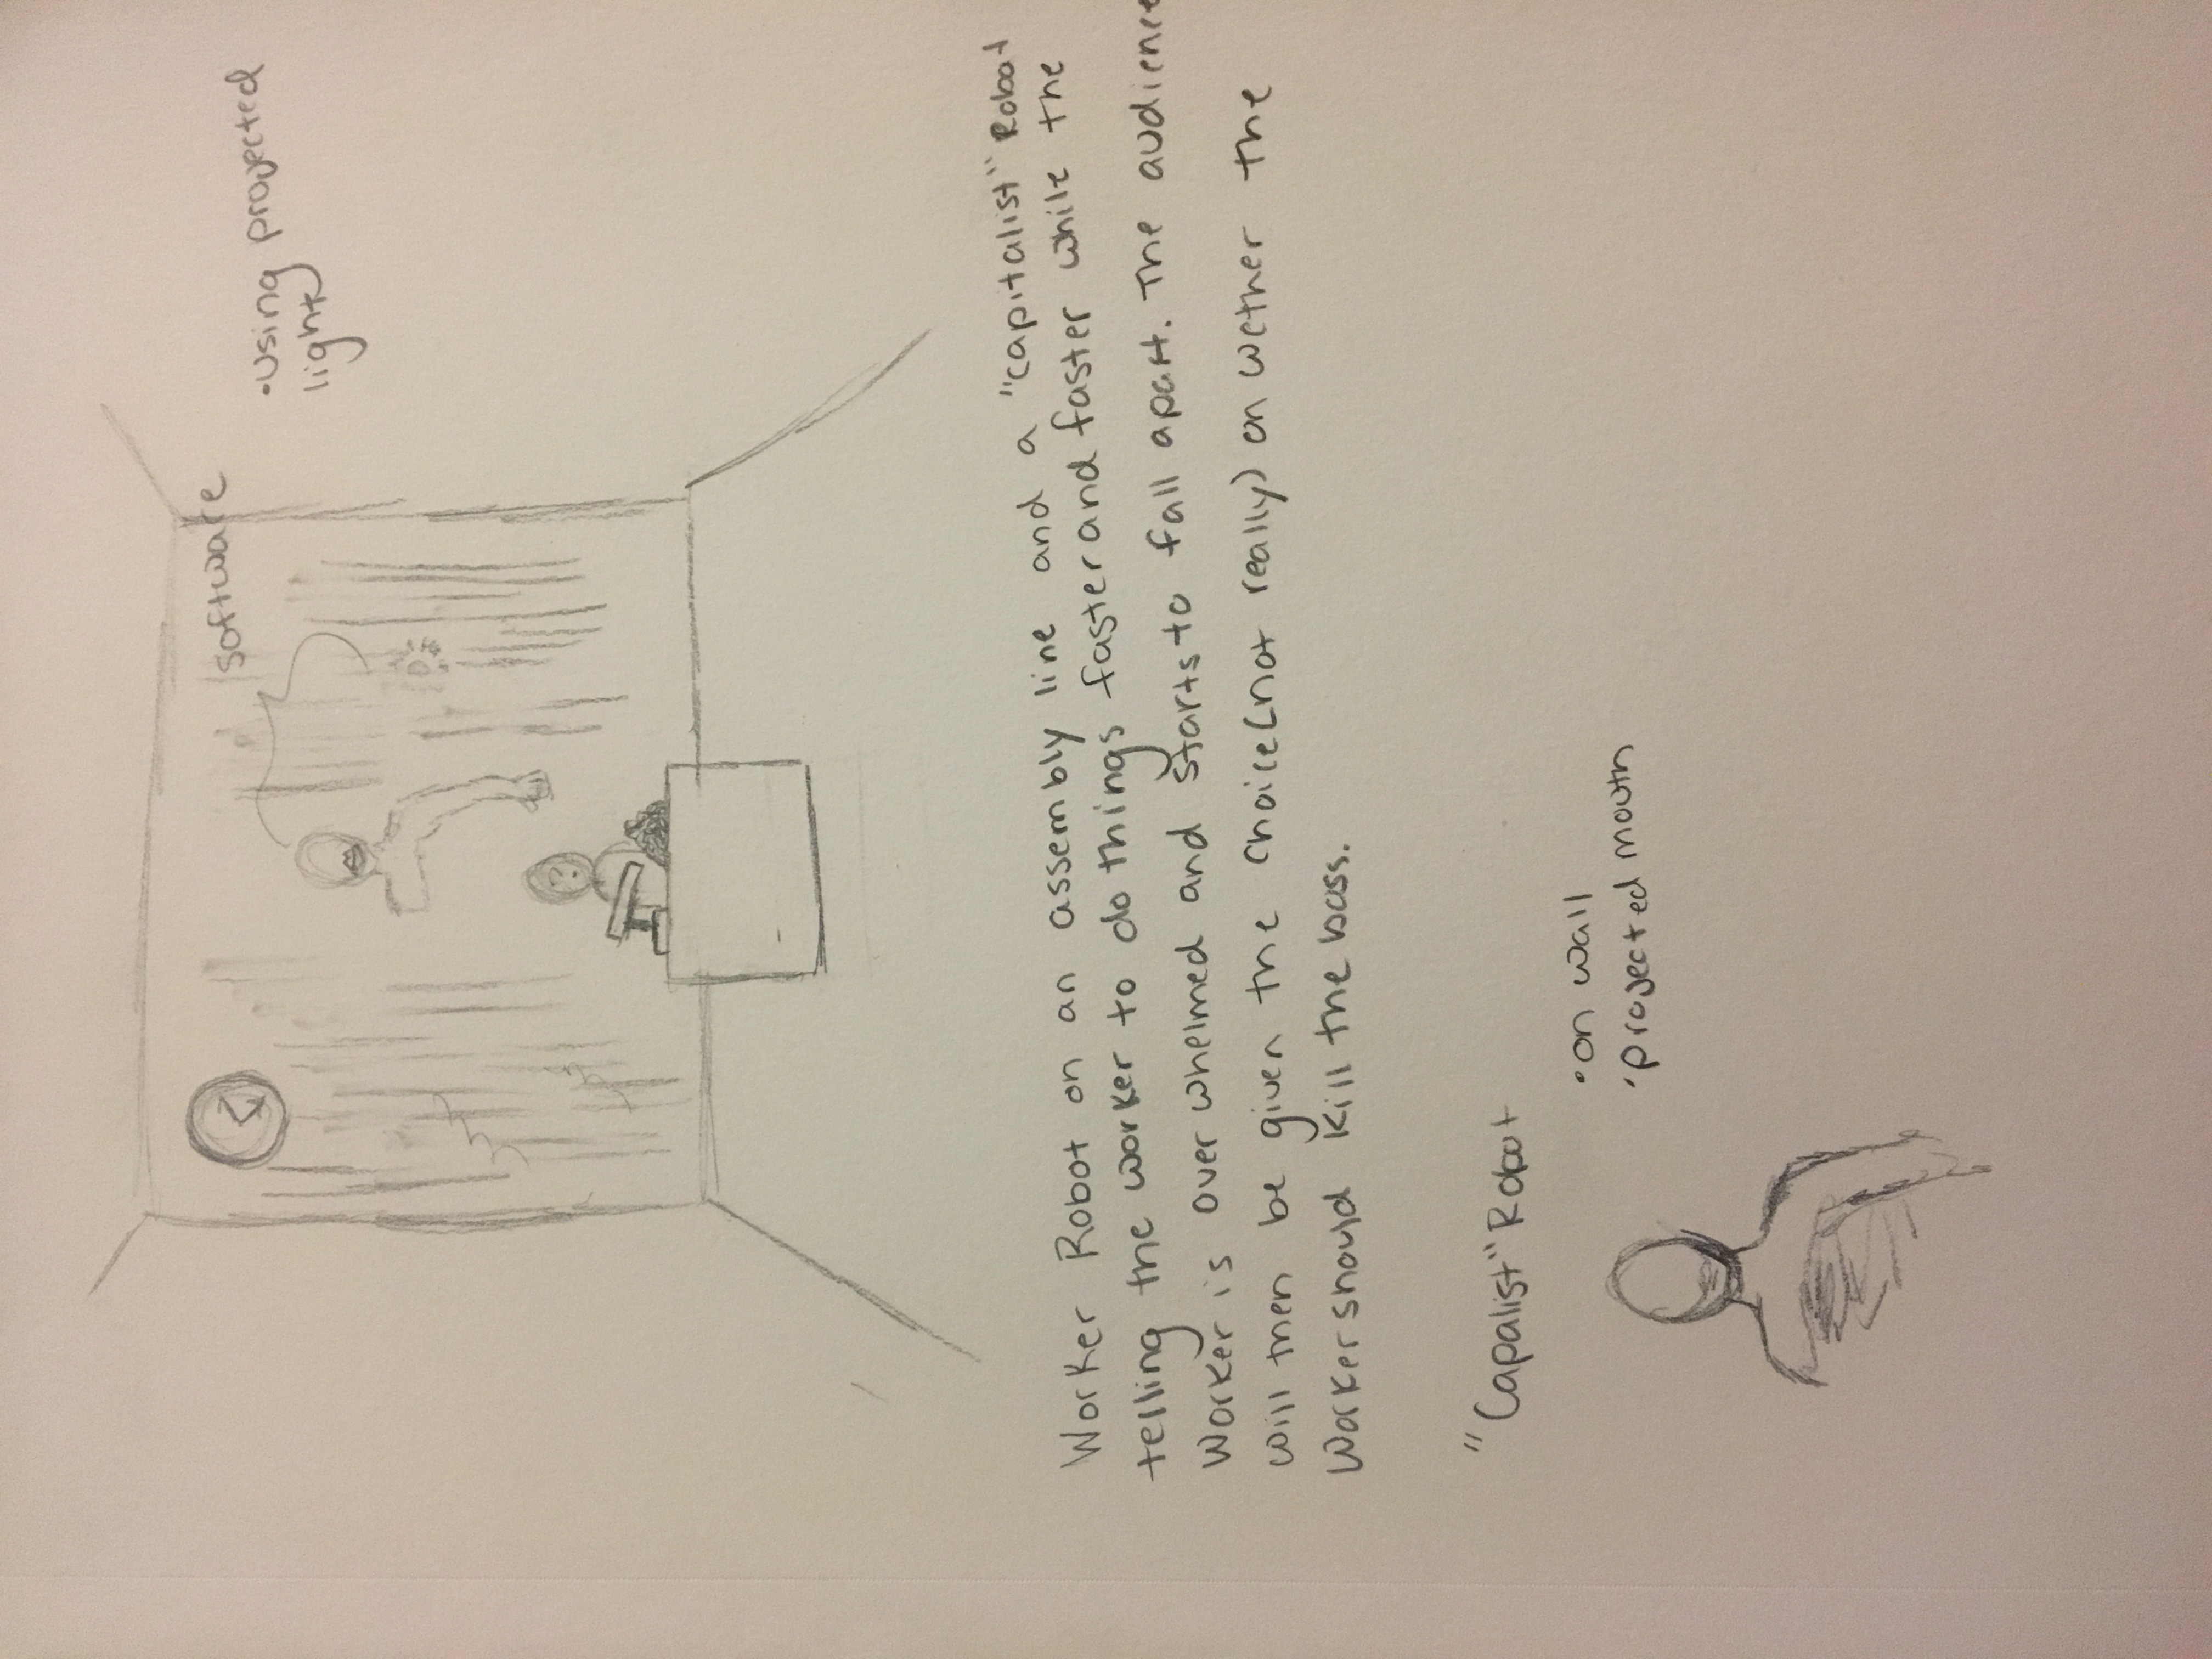 software
•Using projected
light
Worker Robot on an assembly line and a "capitalist" Robot
telling the worker to do things faster and faster while the
Worker is over whelmed and starts to fall apart. The audience
will then be given the choice (not really) on wether the
Worker should kill the boss.
"Capalist" Robot
•on wall
•projected mouth
?